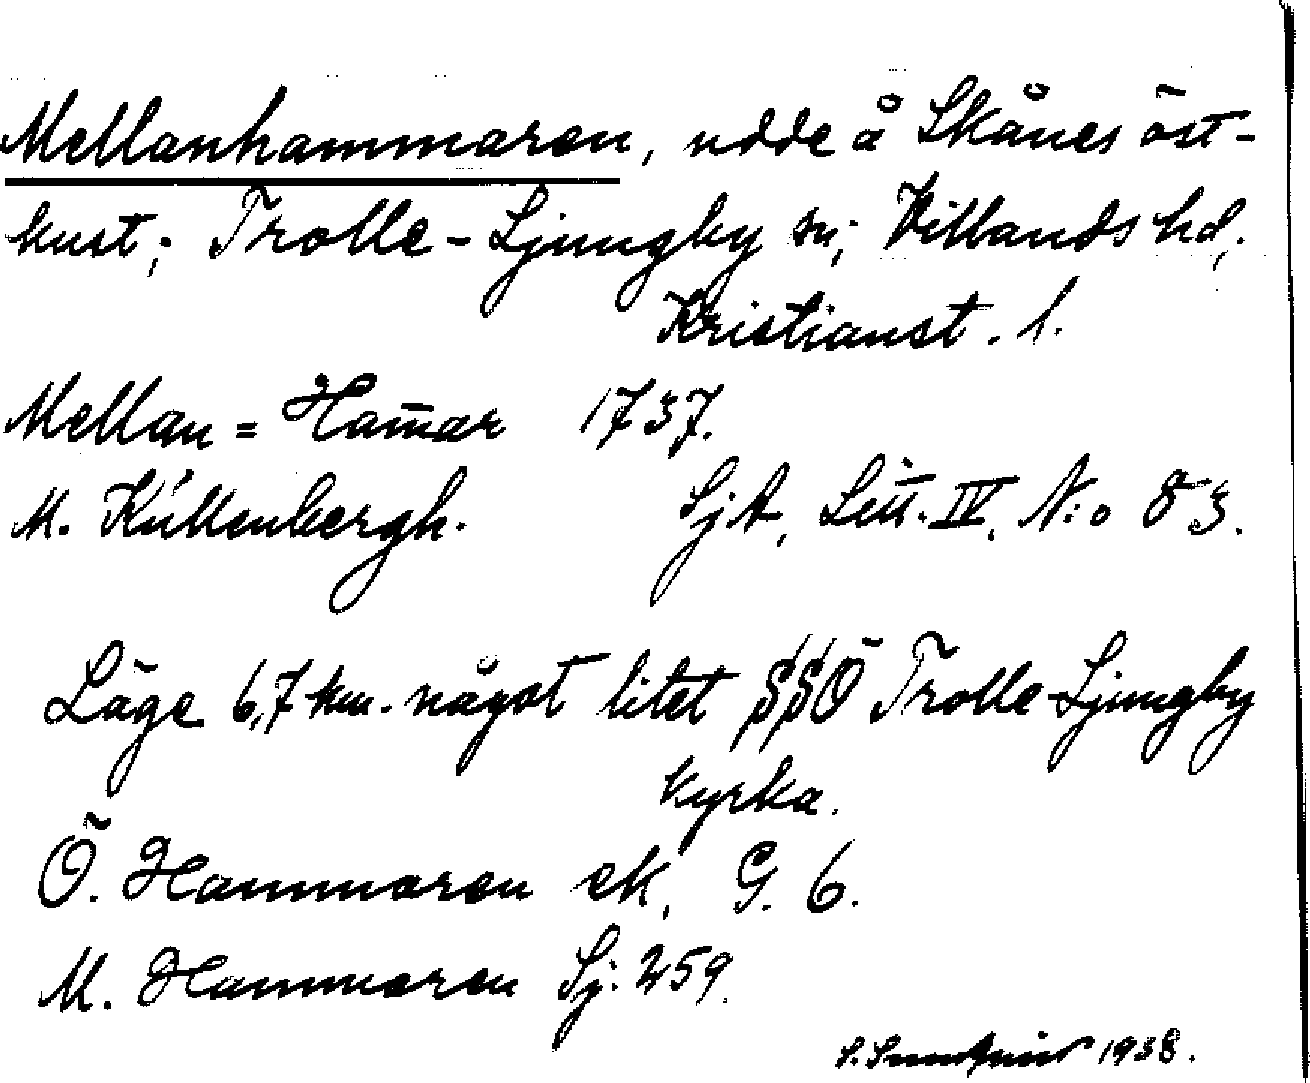 Mellanhammaren, udde å Skånes öst-
kust; Trolle-Ljungby sn; Villands hd,
Kristianst. l.
Mellan = Ham̄ar 1737.
M. Küllenbergh. SjA, Litt. IV, N:o 83.
Läge 6,7 km. något litet SSÖ Trolle-Ljungby
kyrka.
Ö. Hammaren ek, G. 6.
M. Hammaren Sj. 259.
1938.